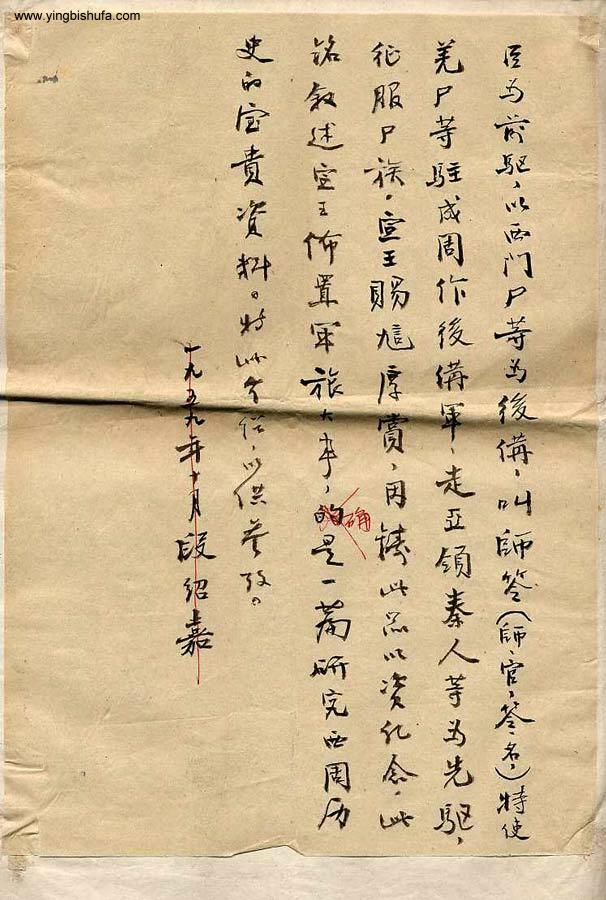 www.yingbishufa.com
臣为前驅,以西門尸等为後備,叫師笭(師,官,笭名,)特使
羌尸等駐成周作後備軍,走亞領秦人等为先驅,
征服尸族,宣王賜厚賞,因鑄此器以資紀念,此
銘敘述宣王佈置軍旅大事,的确是一篇研究西周历
史的宝貴資料。特此介绍,以供參攷。
一九五九年十月段绍嘉